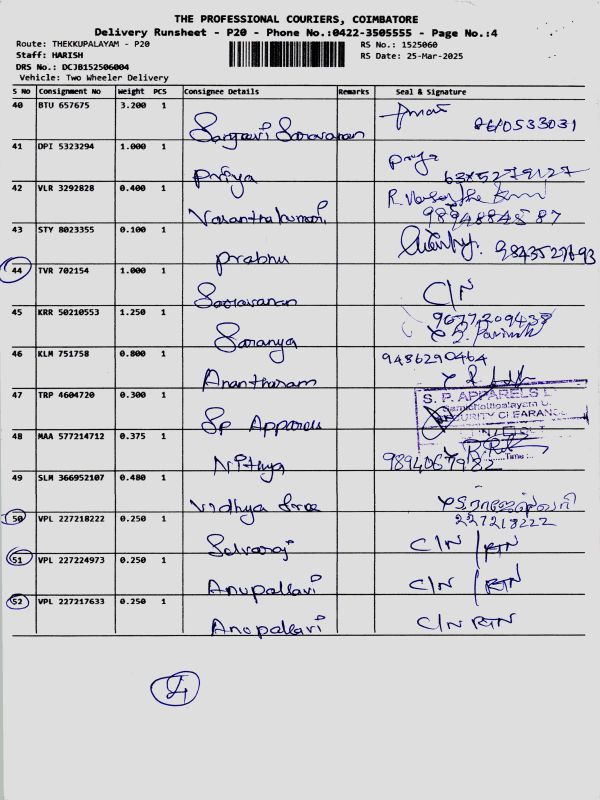 THE PROFESSIONAL COURIERS, COIMBATORE
Delivery Runsheet - P20 - Phone No.:0422-3505555 - Page No.:4
Route: THEKKUPALAYAM - P20 RS No.: 1525060
Staff: HARISH RS Date: 25-Mar-2025
DRS No.: DCJB152506004
Vehicle: Two Wheeler Delivery
S No Consignment No Weight PCS Consignee Details Remarks Seal & Signature
40 BTU 657675 3.200 1 Saravanan
41 DPI 5323294 1.000 1 Priya Priya
42 VLR 3292828 0.400 1 Vasanthakumari
43 STY 8023355 0.100 1 Prabhu
44 TVR 702154 1.000 1 Saravanan C/N
45 KRR 50210553 1.250 1 Saranya 9677209438
46 KLM 751758 0.800 1 Anantharam 9486290464
47 TRP 4604720 0.300 1 SP Apparels S. P. APPARELS
SECURITY CLEARANCE
48 MAA 577214712 0.375 1 Nithya 9894067982
49 SLM 366952107 0.480 1 Vidhya Sree
227218222
50 VPL 227218222 0.250 1 Selvaraj C/N / RTN
51 VPL 227224973 0.250 1 Anupallavi C/N / RTN
52 VPL 227217633 0.250 1 Anupallavi C/N RTN